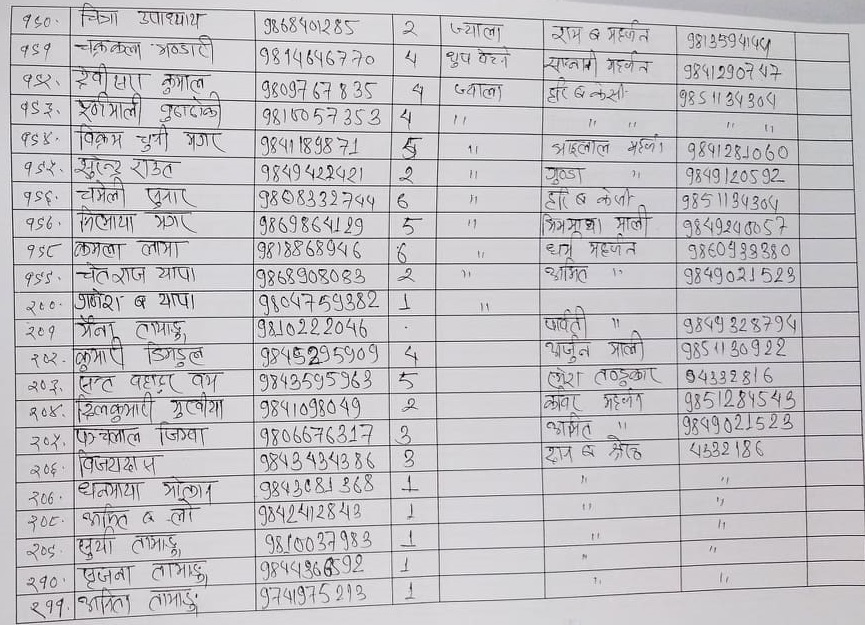 १९०. चित्रा उपाध्याय 9868401285 2 ज्याला राम ब महर्जन 9813594144
१९१ चक्रकला भण्डारी 9814646770 4 महर्जन 9841290747
१९२. देवीसरा कुमाल 9809767835 4 ज्याला हरि ब केसी 9851134304
१९३. 9810057353 4 " " " " "
१९४. विक्रम चुमी मगर 9841189871 5 " महर्जन 9841281060
१९५. सुरेन्द्र राउत 9849422421 2 " " 9849120592
१९६. चमेली सुनार 9808332744 6 " हरि ब केसी 9851134304
१९७. मगर 9869864129 5 " माली 9849240057
१९८ कमला लामा 9818868946 6 " महर्जन 9860433380
१९९. चेतराज थापा 9868908083 2 " अमित " 9849021523
२००. गणेश ब थापा 9804759382 1 "
२०१ मैना तामाङ 9810222046 . पार्वती " 9849328794
२०२. कुमारी 9845295909 4 अर्जुन माली 9851130922
२०३. सन्त बहादुर बम 9843595963 5 तण्डुकार 94332816
२०४. दिलकुमारी 9841098049 2 महर्जन 9851284543
२०५. पञ्चलाल जिम्बा 9806676317 3 अमित " 9849021523
२०६. विजयदास 9843434386 3 ब श्रेष्ठ 4332186
२०७. धनमाया 9843081368 1 " "
२०८. ब 9842412843 1 " "
२०९. तामाङ 9810037983 1 " "
२१०. सृजना तामाङ 9844366592 1 " "
२११. तामाङ 9741975213 1 " "